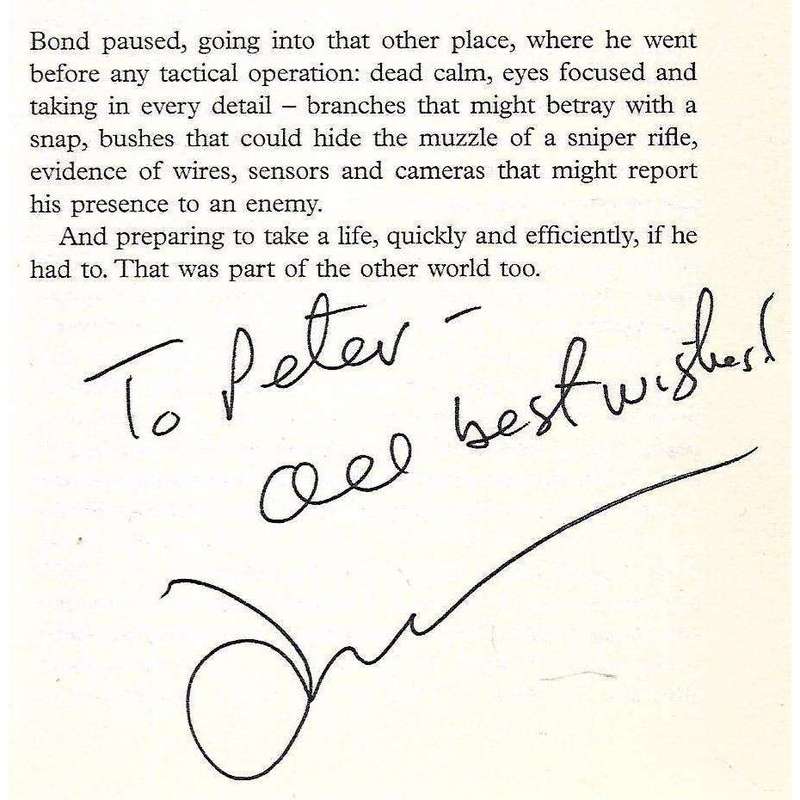 Bond paused, going into that other place, where he went
before any tactical operation: dead calm, eyes focused and
taking in every detail – branches that might betray with a
snap, bushes that could hide the muzzle of a sniper rifle,
evidence of wires, sensors and cameras that might report
his presence to an enemy.
And preparing to take a life, quickly and efficiently, if he
had to. That was part of the other world too.
To Peter –
all best wishes!